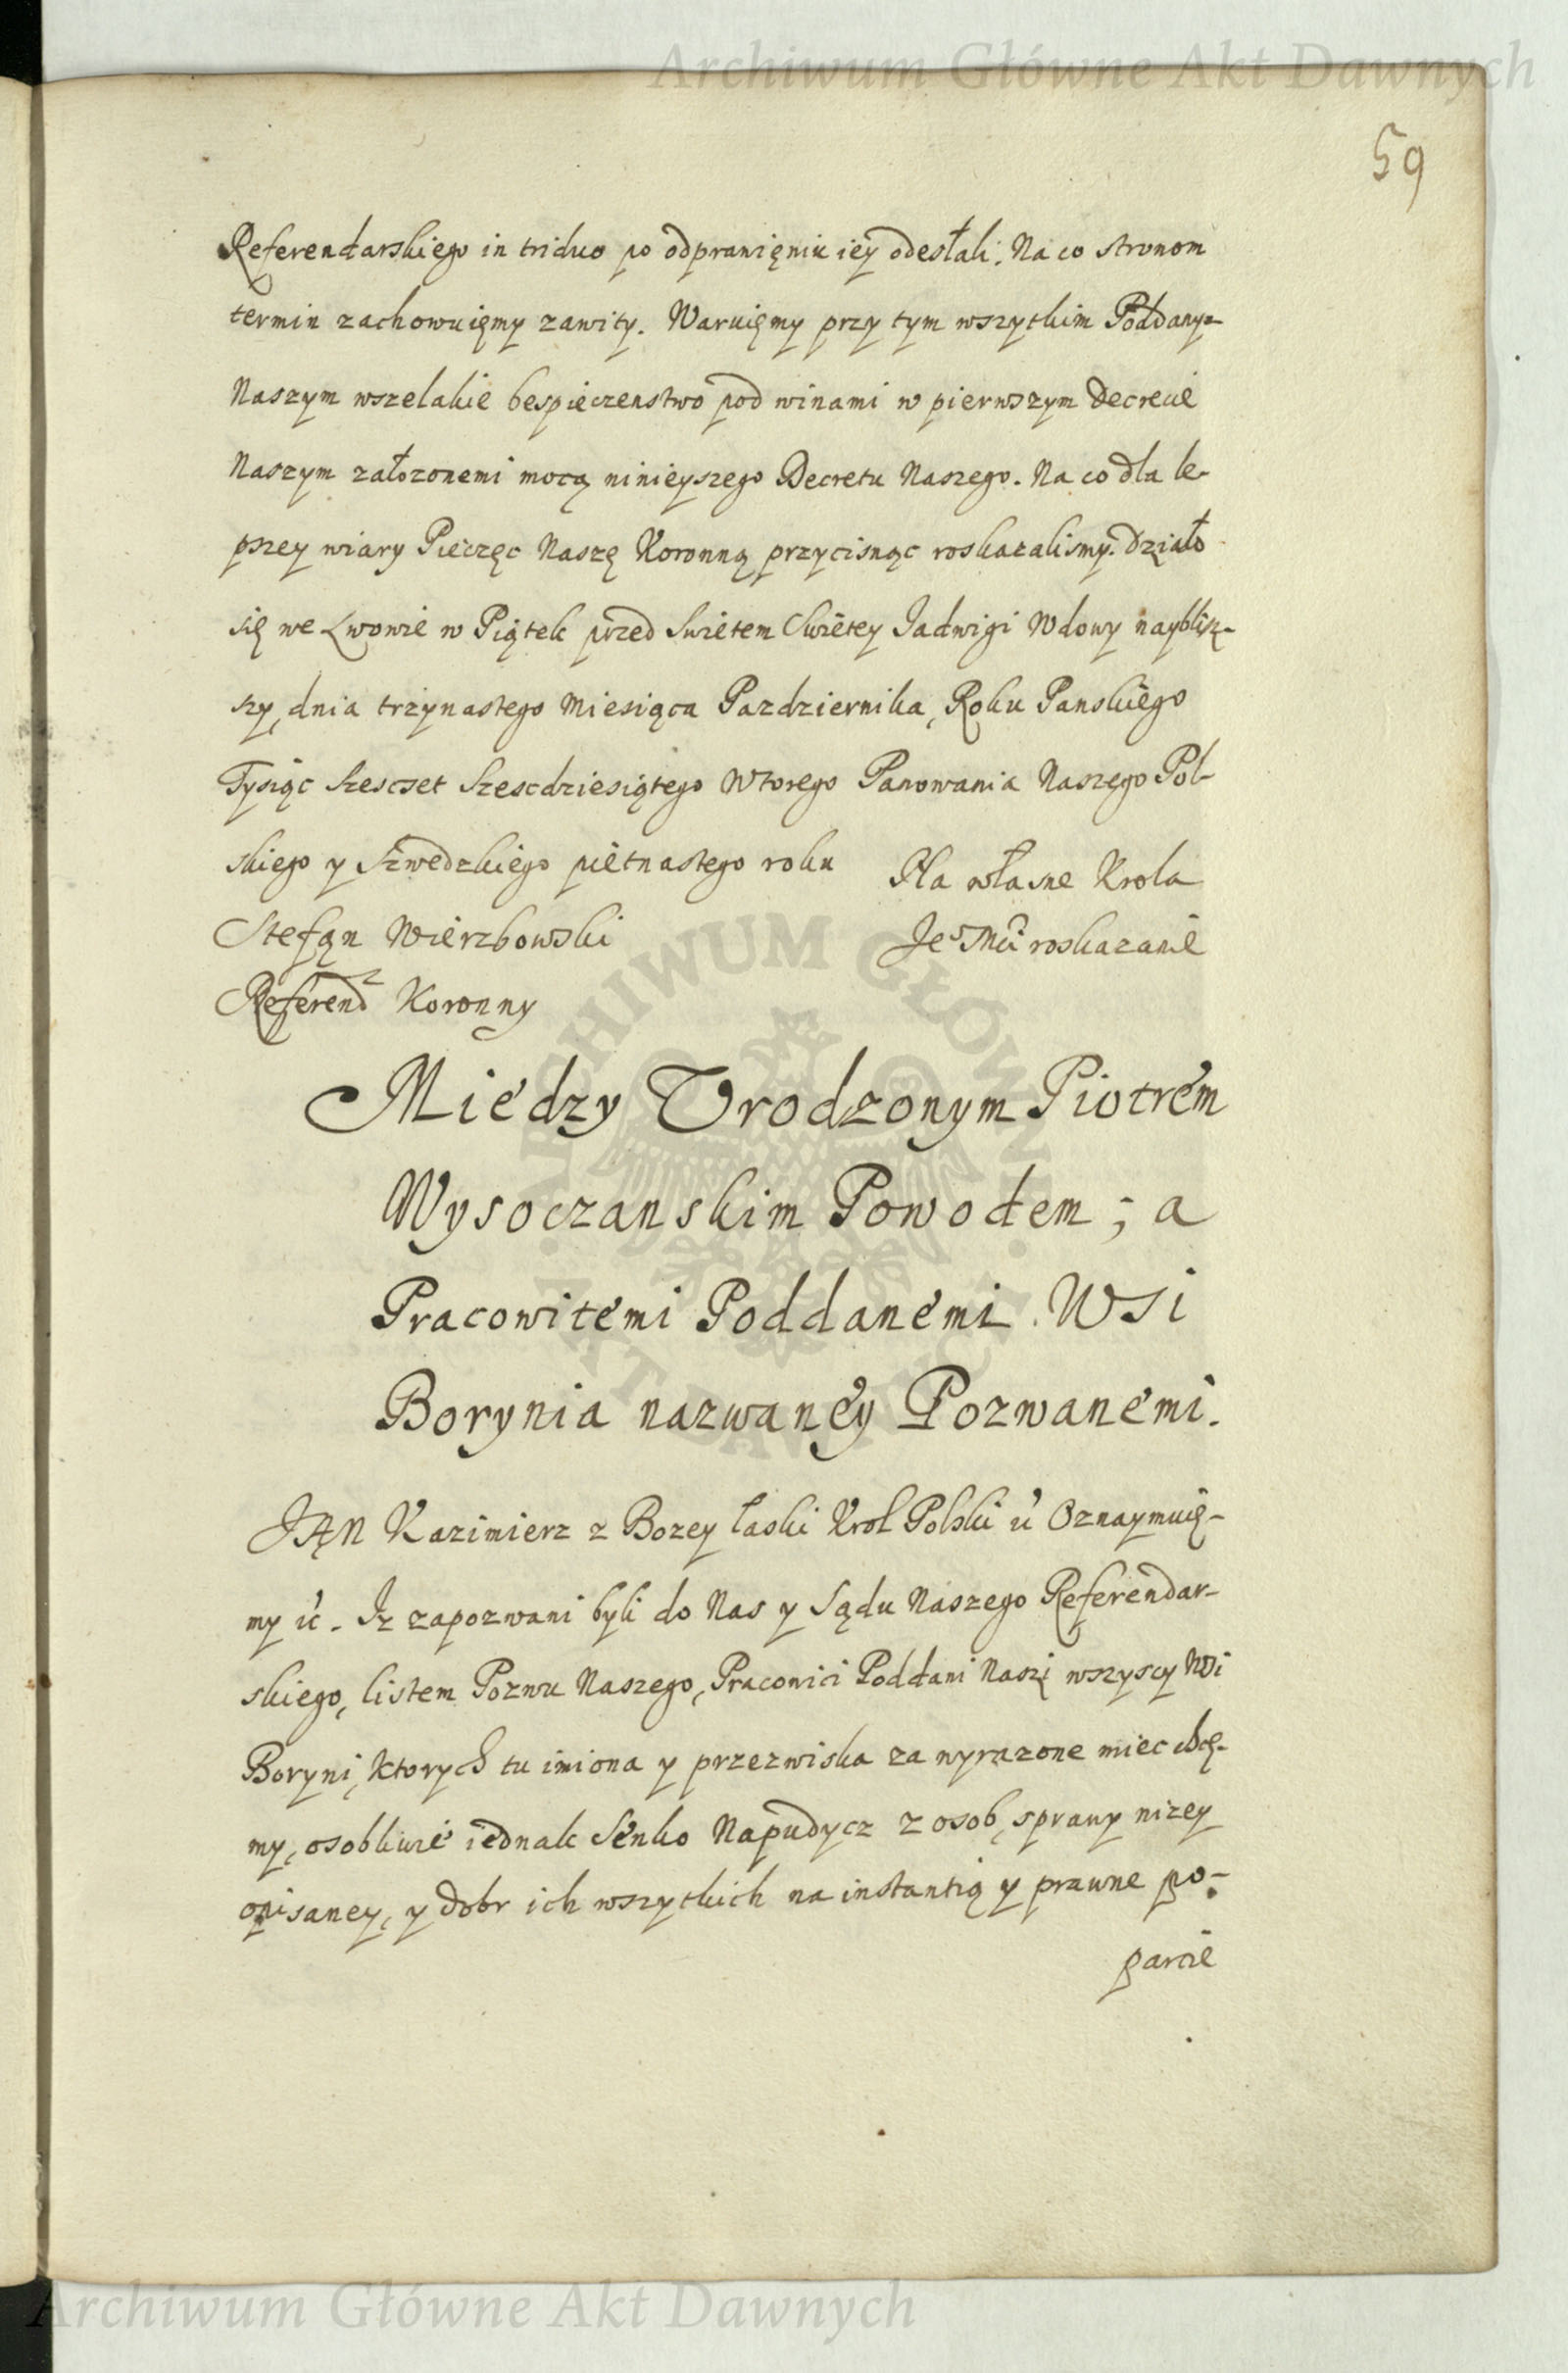 Archiwum Główne Akt Dawnych
59
Referendarskiego in triduo po odprawięniu iey odesłali. Na co stronom
termin zachowuięmy zawity. Waruięmy przy tym wszytkim Poddany=
Naszym wszelakie bespieczenstwo pod winami w pierwszym Decrecie
Naszym załozonemi mocą ninieyszego Decretu Naszego. Na co dla le-
pszey wiary Pieczęc Naszę Koronną przycisnąc roskazalismy. Działo
się we Lwowie w Piątek przed Swietem Swietey Jadwigi Wdowy naybliz-
szy, dnia trzynastego Miesiąca Pazdziernika, Roku Panskiego
Tysiąc Szescset Szescdziesiątego Wtorego Panowania Naszego Pol-
skiego y Szwedzkiego pietnastego roku
Na własne Krola
Stefan Wierzbowski
Je⁰ Mci roskazanie
Referend Koronny
Miedzy Vrodzonym Piotrem
Wysoczanskim Powodem ; a
Pracowitemi Poddanemi WSi
Borynia nazwaney Pozwanemi.
JAN Kazimierz z Bozey łaski Krol Polski ic Oznaymuię-
my ic. Iz zapozwani byli do Nas y Sądu Naszego Referendar-
skiego, listem Pozwu Naszego, Pracowici Poddani Naszi wszyscy Wsi
Boryni, ktorych tu imiona y przezwiska za wyrazone miec chcę-
my, osobliwie iednak Senko Napudycz z osob, sprawy nizey
opisaney, y dobr ich wszytkich na instantią y prawne po-
parcie
ARCHIWUM GŁÓWNE AKT DAWNYCH
Archiwum Główne Akt Dawnych